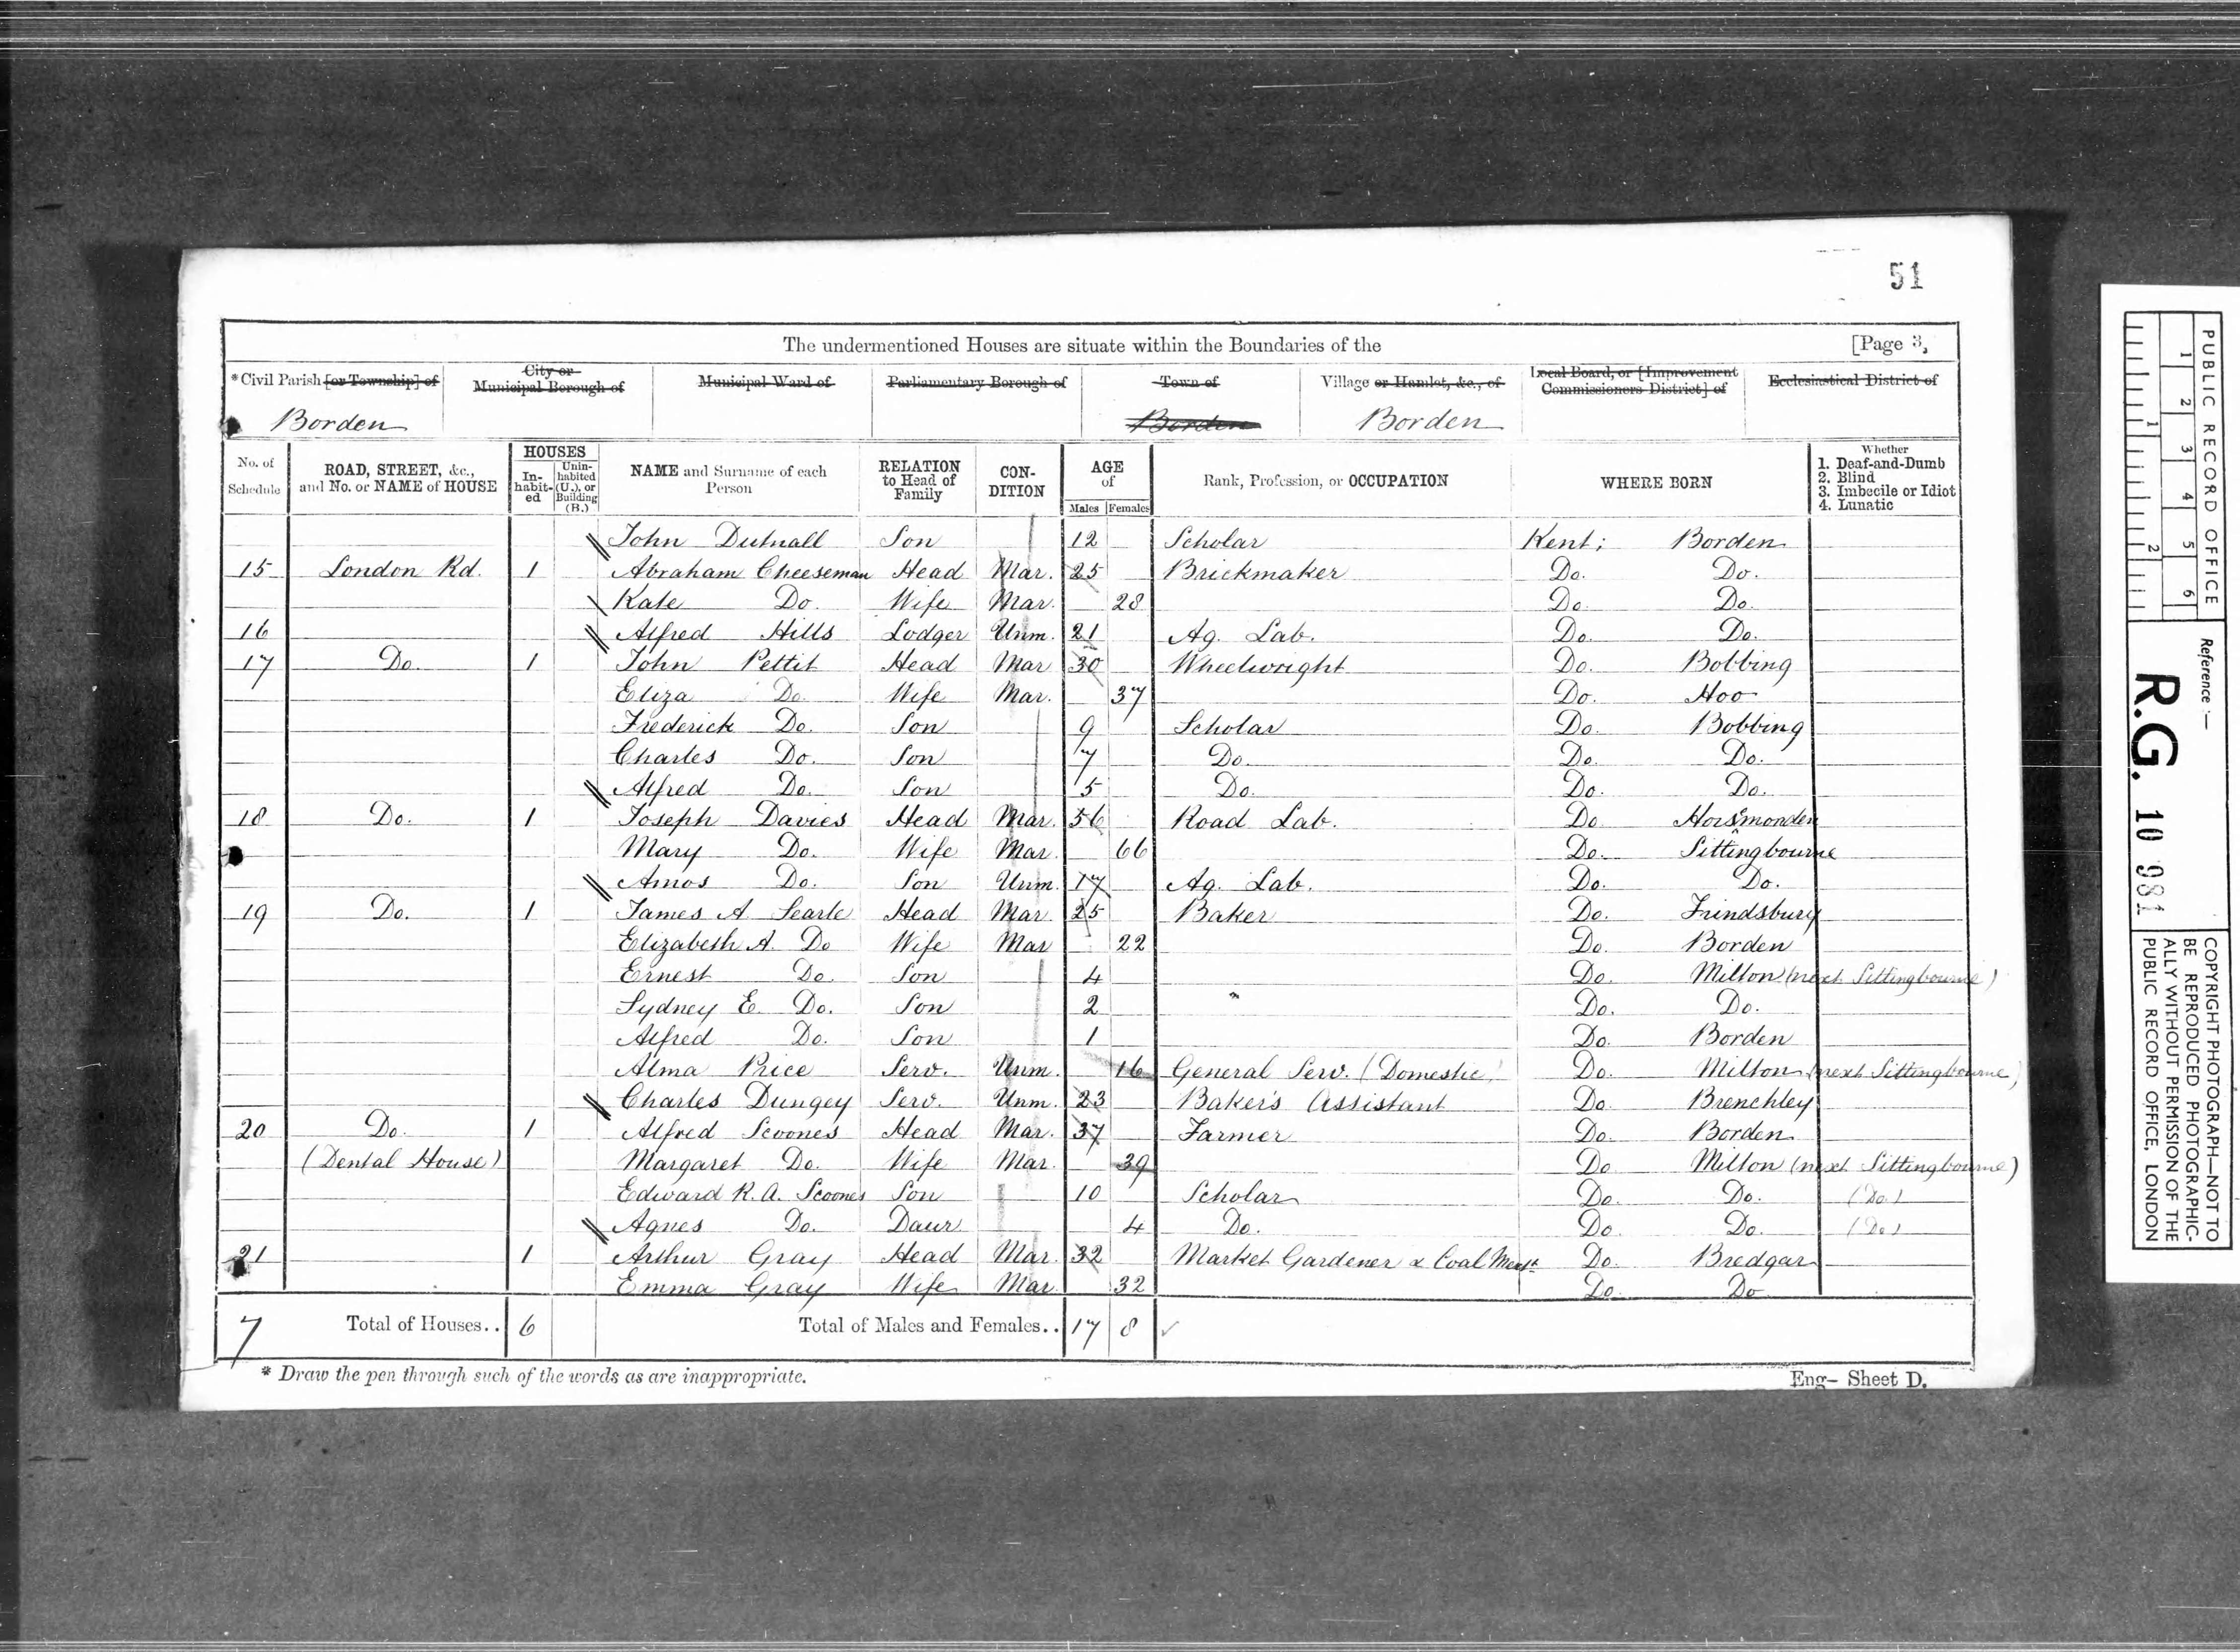 51
The undermentioned Houses are situate within the Boundaries of the [Page 3,
*Civil Parish [or Township] of City or Municipal Borough of Municipal Ward of Parliamentary Borough of Town of Village or Hamlet, &c., of Local Board, or [Improvement Commissioners District] of Ecclesiastical District of
Borden Borden Borden
No. of Schedule ROAD, STREET, &c., and No. or NAME of HOUSE HOUSES In-habit-ed Unin-habited (U.), or Building (B.) NAME and Surname of each Person RELATION to Head of Family CON-DITION AGE of Males Females Rank, Profession, or OCCUPATION WHERE BORN Whether 1. Deaf-and-Dumb 2. Blind 3. Imbecile or Idiot 4. Lunatic
John Dutnall Son 12 Scholar Kent; Borden
15 London Rd. 1 Abraham Cheeseman Head Mar. 25 Brickmaker Do. Do.
Kate Do. Wife Mar. 28 Do. Do.
16 Alfred Hills Lodger Unm. 21 Ag. Lab. Do. Do.
17 Do. 1 John Pettit Head Mar 30 Wheelwright Do. Bobbing
Eliza Do Wife Mar. 37 Do. Hoo
Frederick Do. Son 9 Scholar Do. Bobbing
Charles Do. Son 7 Do. Do. Do.
Alfred Do. Son 5 Do. Do. Do.
18 Do. 1 Joseph Davies Head Mar. 56 Road Lab. Do Horsmonden
Mary Do. Wife Mar. 66 Do. Sittingbourne
Amos Do. Son Unm. 17 Ag. Lab. Do. Do.
19 Do. 1 James A Searle Head Mar. 25 Baker Do. Frindsbury
Elizabeth A. Do Wife Mar 22 Do. Borden
Ernest Do. Son 4 Do. Milton (next Sittingbourne)
Sydney E. Do. Son 2 Do. Do.
Alfred Do. Son 1 Do. Borden
Alma Price Serv. Unm. 16 General Serv. (Domestic) Do. Milton (next Sittingbourne)
Charles Dungey Serv. Unm. 23 Baker's Assistant Do. Brenchley
20 Do. 1 Alfred Scoones Head Mar. 37 Farmer Do. Borden
(Dental House) Margaret Do. Wife Mar. 39 Do Milton (next Sittingbourne)
Edward R. A. Scoones Son 10 Scholar Do. Do. (Do.)
Agnes Do. Daur 4 Do. Do. Do. (Do)
21 1 Arthur Gray Head Mar. 32 Market Gardener & Coal Mercht Do. Bredgar
Emma Gray Wife Mar. 32 Do. Do
7 Total of Houses.. 6 Total of Males and Females.. 17 8
* Draw the pen through such of the words as are inappropriate. Eng- Sheet D.
1 2 3 4 5 6
1 2
PUBLIC RECORD OFFICE
Reference :—
R.G. 10 981
COPYRIGHT PHOTOGRAPH—NOT TO
BE REPRODUCED PHOTOGRAPHIC-
ALLY WITHOUT PERMISSION OF THE
PUBLIC RECORD OFFICE, LONDON